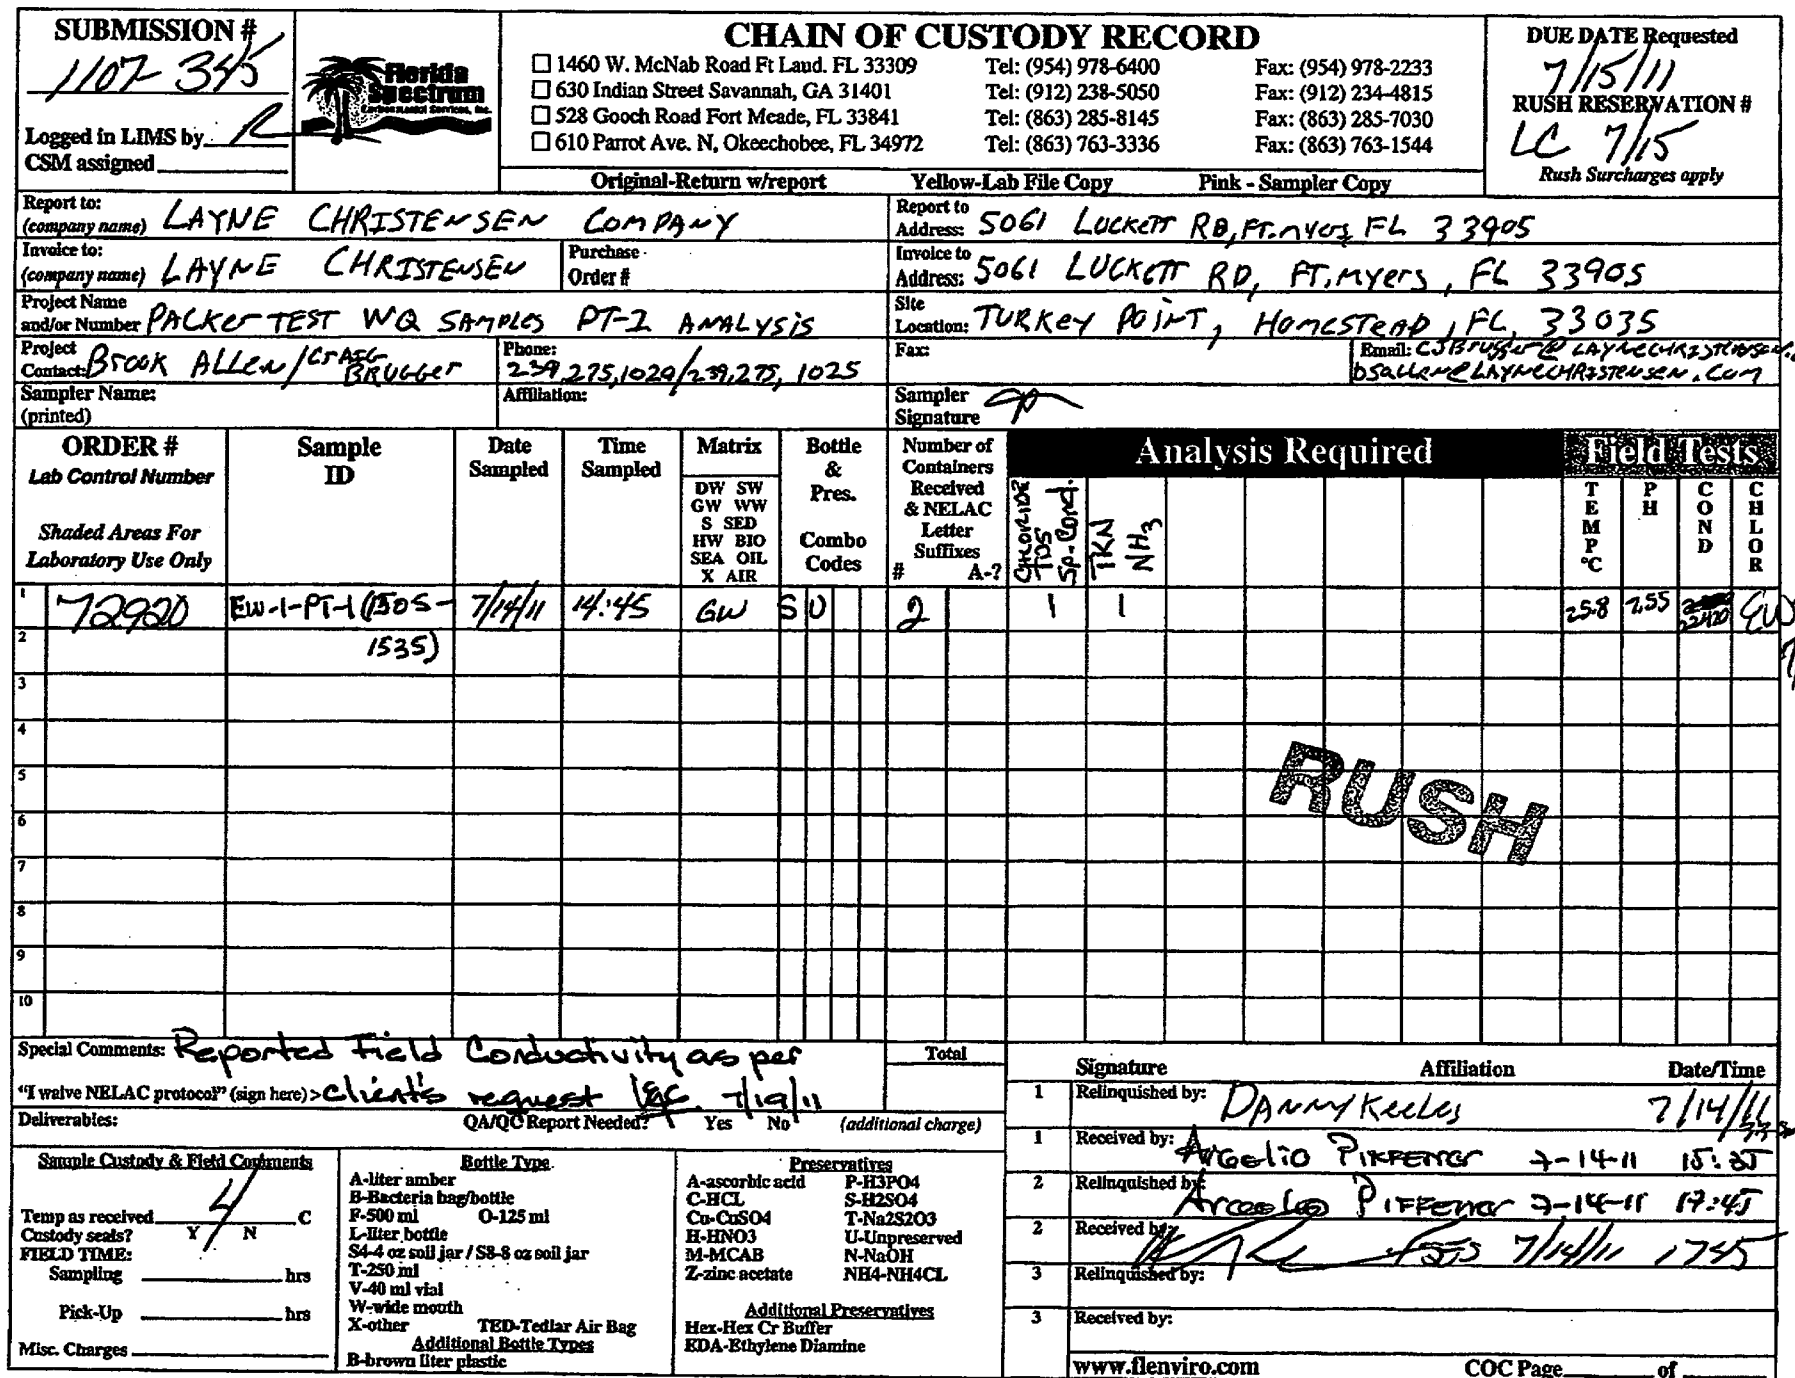 SUBMISSION #
1107-345
Logged in LIMS by
CSM assigned
Florida
Spectrum
Environmental Services, Inc.
CHAIN OF CUSTODY RECORD
☐ 1460 W. McNab Road Ft Laud. FL 33309 Tel: (954) 978-6400 Fax: (954) 978-2233
☐ 630 Indian Street Savannah, GA 31401 Tel: (912) 238-5050 Fax: (912) 234-4815
☐ 528 Gooch Road Fort Meade, FL 33841 Tel: (863) 285-8145 Fax: (863) 285-7030
☐ 610 Parrot Ave. N, Okeechobee, FL 34972 Tel: (863) 763-3336 Fax: (863) 763-1544
Original-Return w/report Yellow-Lab File Copy Pink - Sampler Copy
DUE DATE Requested
7/15/11
RUSH RESERVATION #
LC 7/15
Rush Surcharges apply
Report to:
(company name) LAYNE CHRISTENSEN COMPANY
Report to
Address: 5061 LUCKETT RD, FT. Myers FL 33905
Invoice to:
(company name) LAYNE CHRISTENSEN
Purchase
Order #
Invoice to
Address: 5061 LUCKETT RD, FT. Myers, FL 33905
Project Name
and/or Number PACKer TEST WQ SAMPLES PT-1 ANALYSIS
Site
Location: TURKEY POINT, HOMESTEAD, FL, 33035
Project
Contact: Brook ALLEN/CRAIG BRUGGER
Phone:
239,275,1020/239,275,1025
Fax:
Email: CJBrugger@LAYNECHRISTENSEN.
bsallen@LAYNECHRISTENSEN.COM
Sampler Name:
(printed)
Affiliation:
Sampler
Signature
ORDER #
Lab Control Number
Shaded Areas For
Laboratory Use Only
Sample
ID
Date
Sampled
Time
Sampled
Matrix
DW SW
GW WW
S SED
HW BIO
SEA OIL
X AIR
Bottle
&
Pres.
Combo
Codes
Number of
Containers
Received
& NELAC
Letter
Suffixes
# A-?
Analysis Required
CHLORIDE
TDS
Sp. Cond.
TKN
NH3
Field Tests
TEMP °C
PH
COND
CHLOR
1 72920 EW-1-PT-1 (1505- 7/14/11 14:45 GW S U 2 1 1 25.8 7.55 22420
2 1535)
3
4
5
6
7
8
9
10
RUSH
Special Comments: Reported Field Conductivity as per
"I waive NELAC protocol" (sign here) > client's request 7/19/11
Total
Deliverables: QA/QC Report Needed? Yes No (additional charge)
Sample Custody & Field Comments
Temp as received 4 C
Custody seals? Y N
FIELD TIME:
Sampling hrs
Pick-Up hrs
Misc. Charges
Bottle Type
A-liter amber
B-Bacteria bag/bottle
F-500 ml O-125 ml
L-liter bottle
S4-4 oz soil jar / S8-8 oz soil jar
T-250 ml
V-40 ml vial
W-wide mouth
X-other TED-Tedlar Air Bag
Additional Bottle Types
B-brown liter plastic
Preservatives
A-ascorbic acid P-H3PO4
C-HCL S-H2SO4
Cu-CuSO4 T-Na2S2O3
H-HNO3 U-Unpreserved
M-MCAB N-NaOH
Z-zinc acetate NH4-NH4CL
Additional Preservatives
Hex-Hex Cr Buffer
EDA-Ethylene Diamine
Signature Affiliation Date/Time
1 Relinquished by: DANNY Keeles 7/14/11
1 Received by: Argelio Piffener 7-14-11 15:35
2 Relinquished by: Argelio Piffener 7-14-11 17:45
2 Received by: 7/14/11 1745
3 Relinquished by:
3 Received by:
www.flenviro.com COC Page of